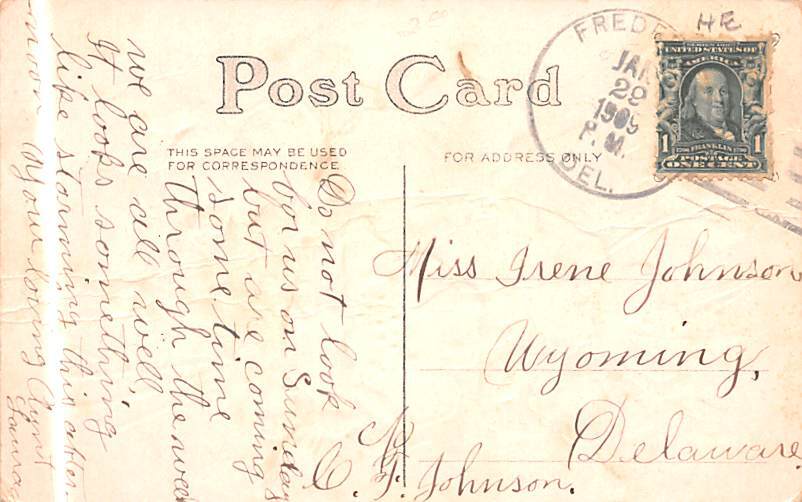 HE
FREDE
JAN
29
1909
P. M.
DEL.
SERIES 1902
UNITED STATES OF
AMERICA
1 FRANKLIN 1
POSTAGE
ONE CENT
Post Card
THIS SPACE MAY BE USED
FOR CORRESPONDENCE
FOR ADDRESS ONLY
Do not look
for us on Sunday
but are coming
some time
through the week
we are all well,
It looks something
like storming this after
noon your loving Aunt
Laura
Miss Irene Johnson
Wyoming,
Delaware.
C. F. Johnson.